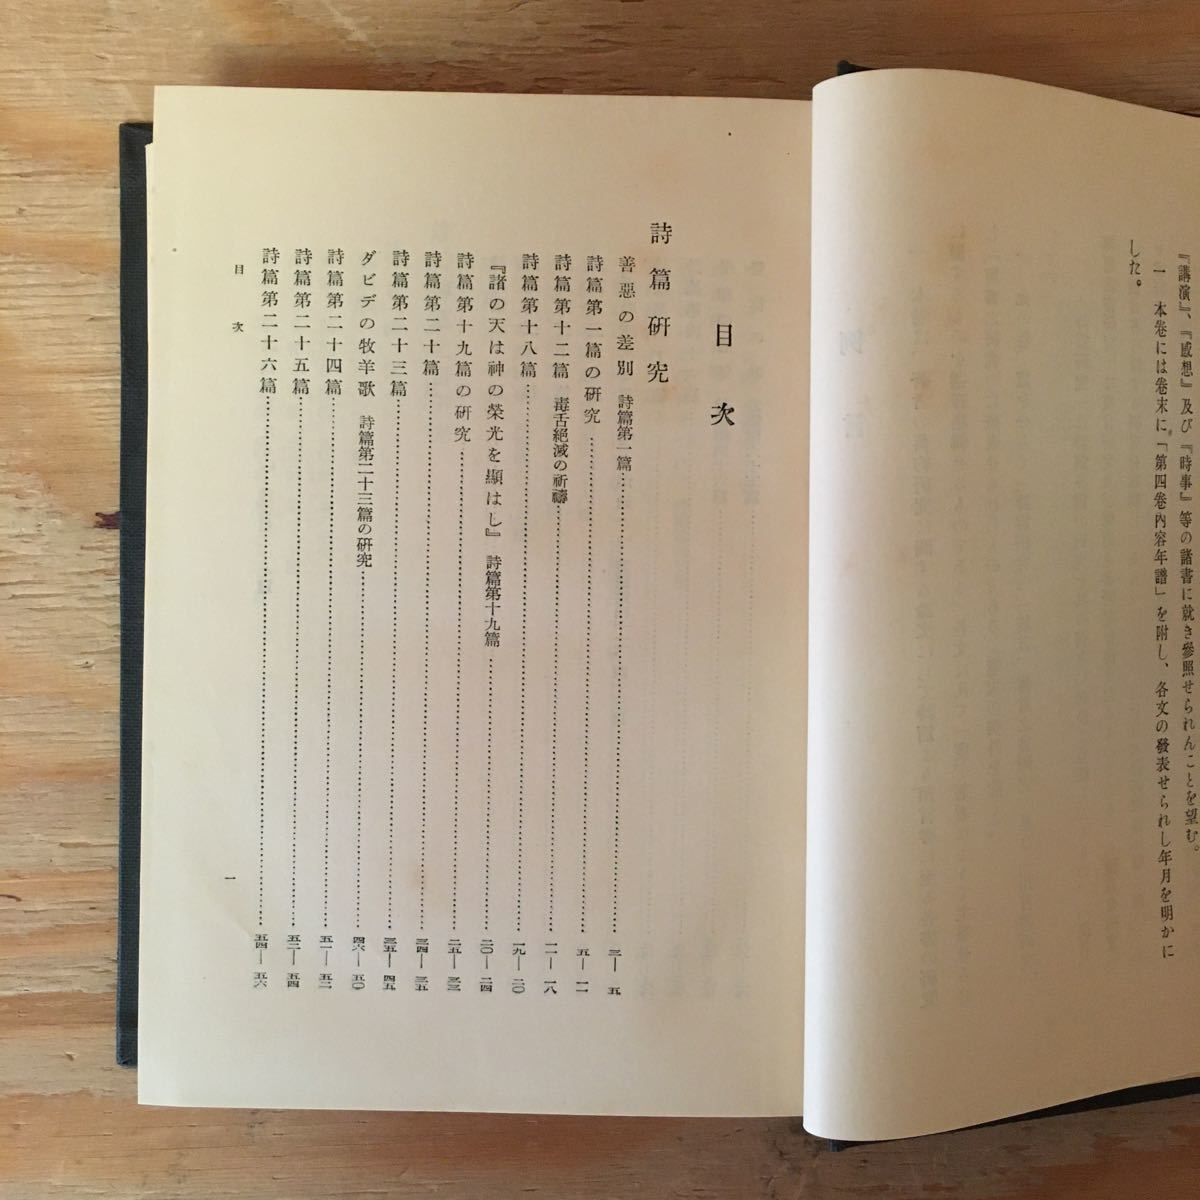 『講演』、『感想』及び『時事』等の諸書に就き參照せられんことを望む。
一 本卷には卷末に「第四卷內容年譜」を附し、各文の發表せられし年月を明かに
した。
目次
詩篇研究
善惡の差別 詩篇第一篇……三—五
詩篇第一篇の研究……五—一一
詩篇第十二篇 毒舌絕滅の祈禱……一一—一八
詩篇第十八篇……一九—二〇
『諸の天は神の榮光を顯はし』 詩篇第十九篇……二〇—二四
詩篇第十九篇の研究……二五—三三
詩篇第二十篇……三四—三五
詩篇第二十三篇……三五—四五
ダビデの牧羊歌 詩篇第二十三篇の研究……四六—五〇
詩篇第二十四篇……五一—五二
詩篇第二十五篇……五二—五四
詩篇第二十六篇……五四—五六
目次
一